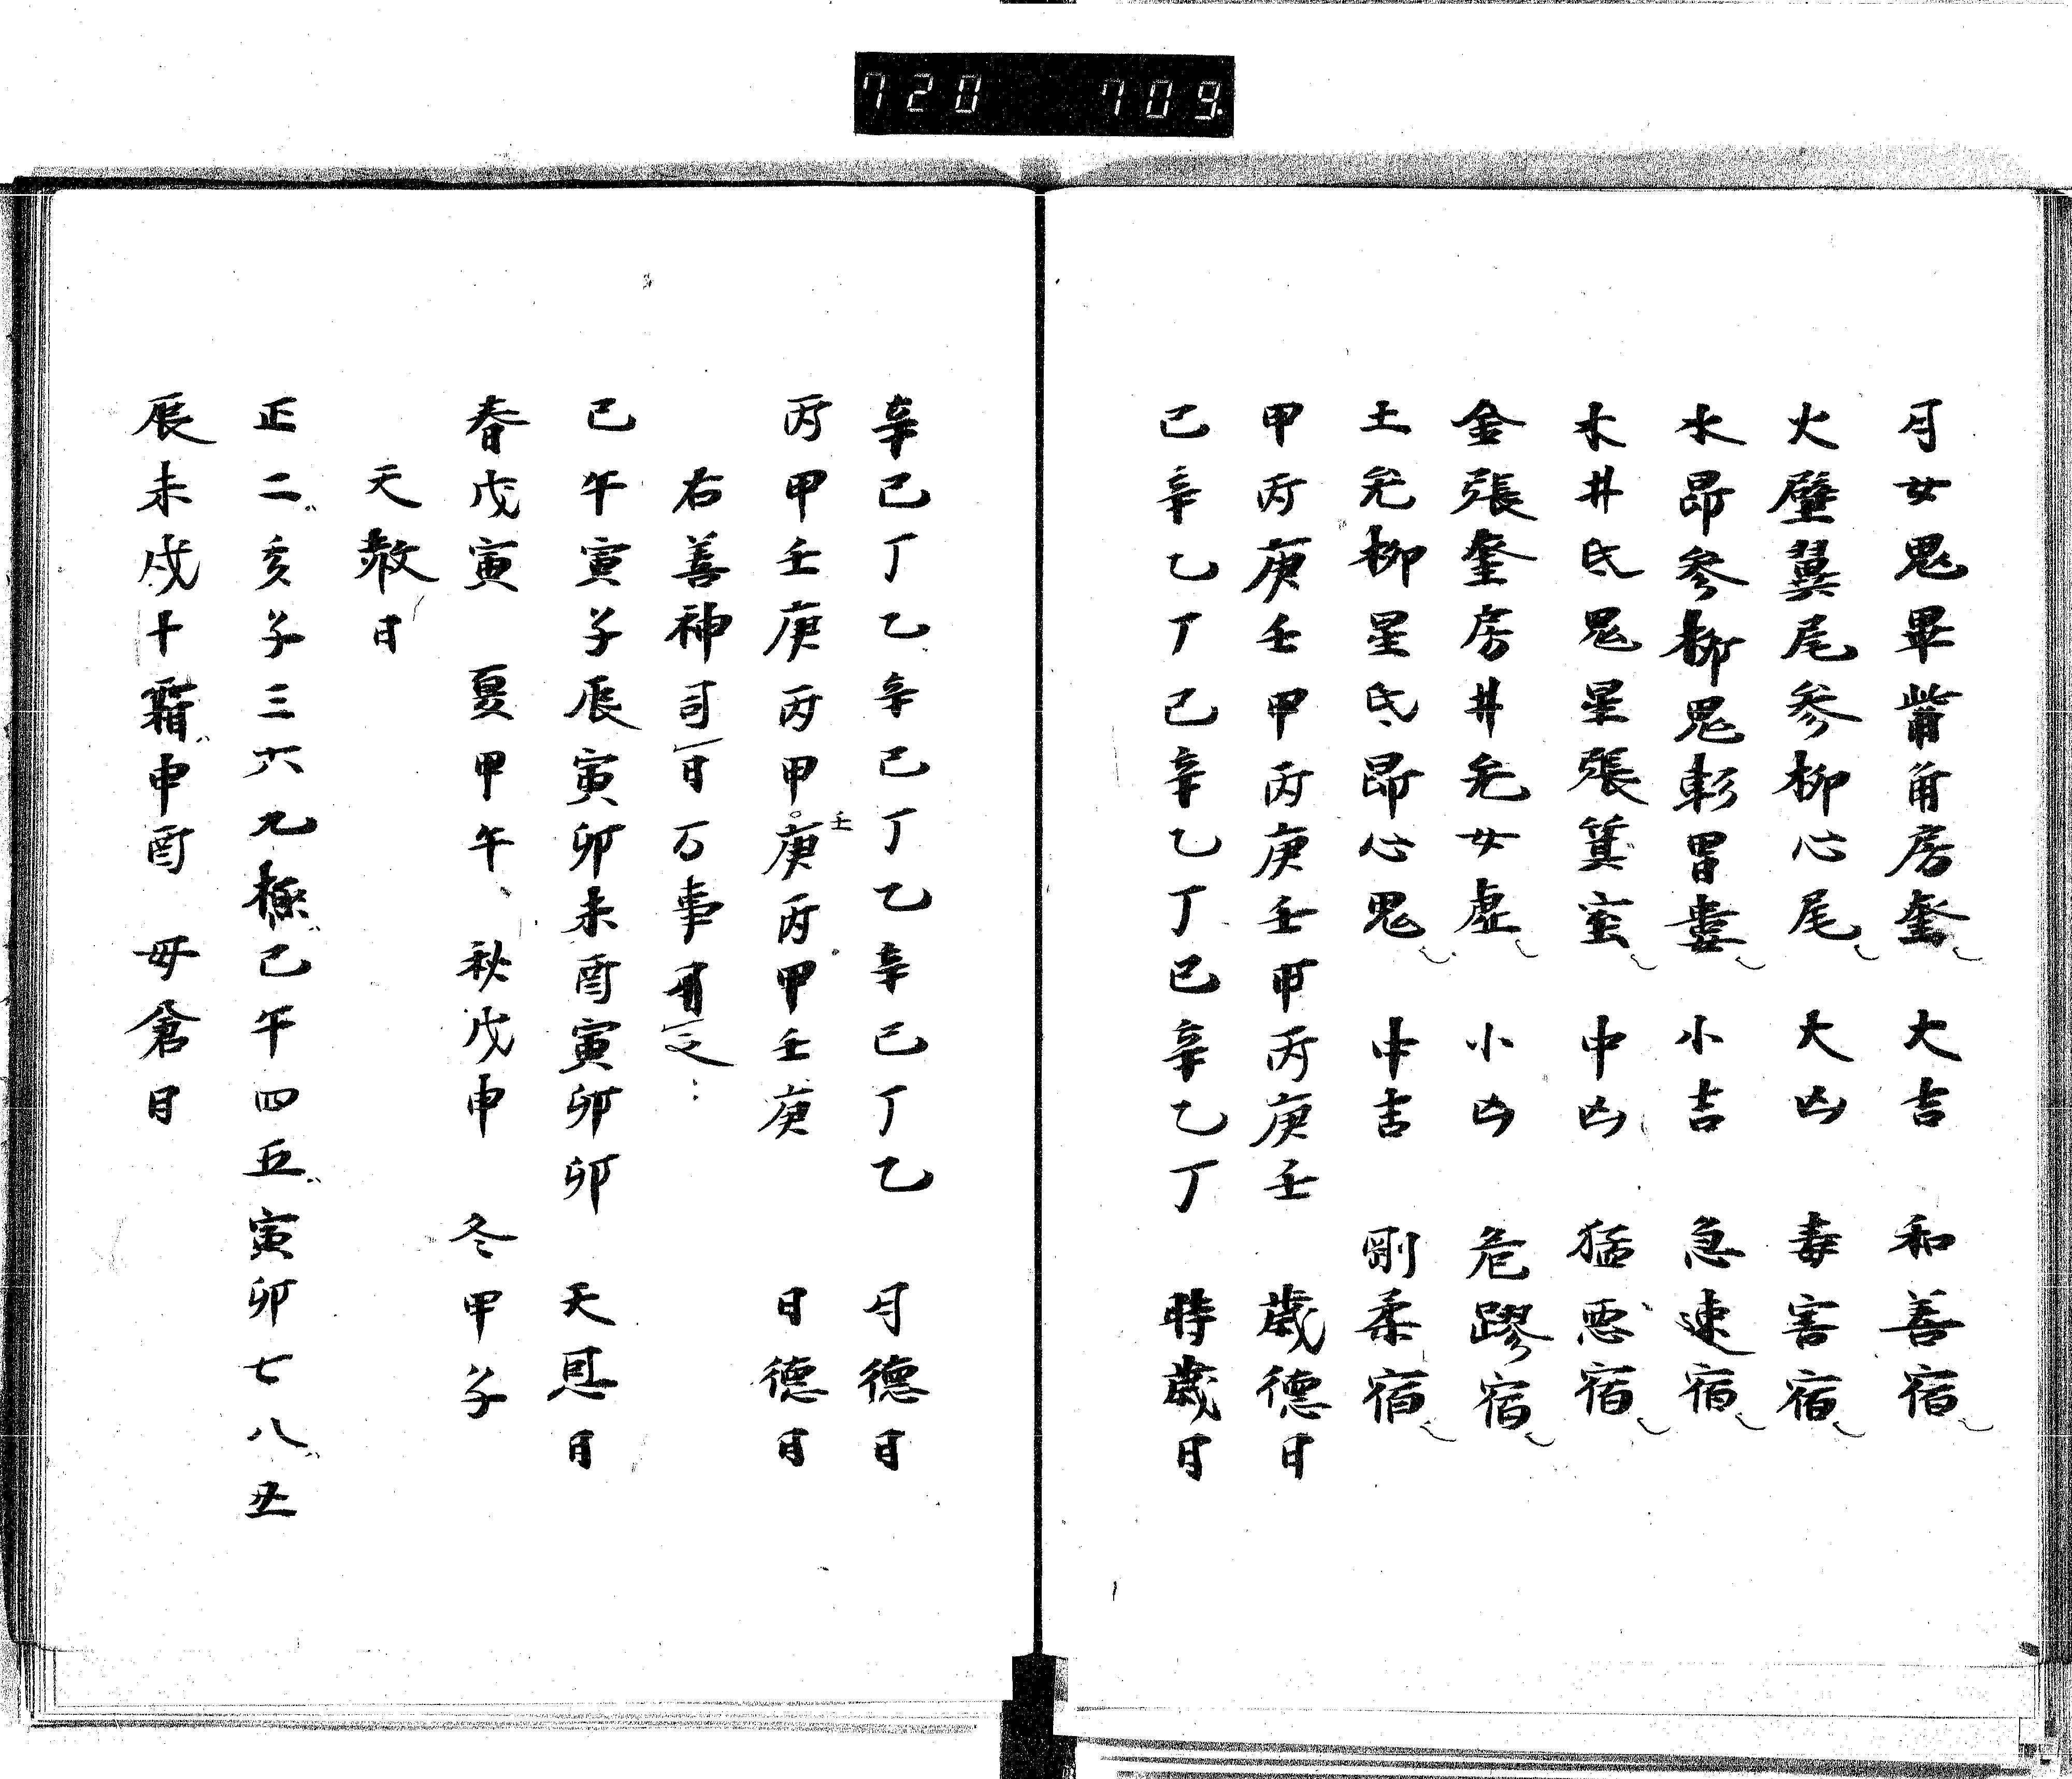 720 709
月女鬼畢觜角房奎 大吉 和善宿
火壁翼尾参柳心尾 大凶 毒害宿
水昴参柳鬼軫胃婁 小吉 急速宿
木井氐鬼星張箕室 中凶 猛悪宿
金張奎房井亢女虚 小凶 危蹘宿
土亢柳星氐昴心鬼 中吉 剛柔宿
甲丙庚壬甲丙庚壬甲丙庚壬 歳德日
己辛乙丁己辛乙丁己辛乙丁 時歳日
辛己丁乙辛己丁乙辛己丁乙 月德日
丙甲壬庚丙甲。庚丙甲壬庚 日德日
壬
右善神司日万事用之
己午寅子辰寅卯未酉寅卯卯 天恩日
春戊寅 夏甲午 秋戊申 冬甲子
天赦日
正二亥子三六九極己午四五寅卯七八丑
辰未戌十霜申酉 母倉日